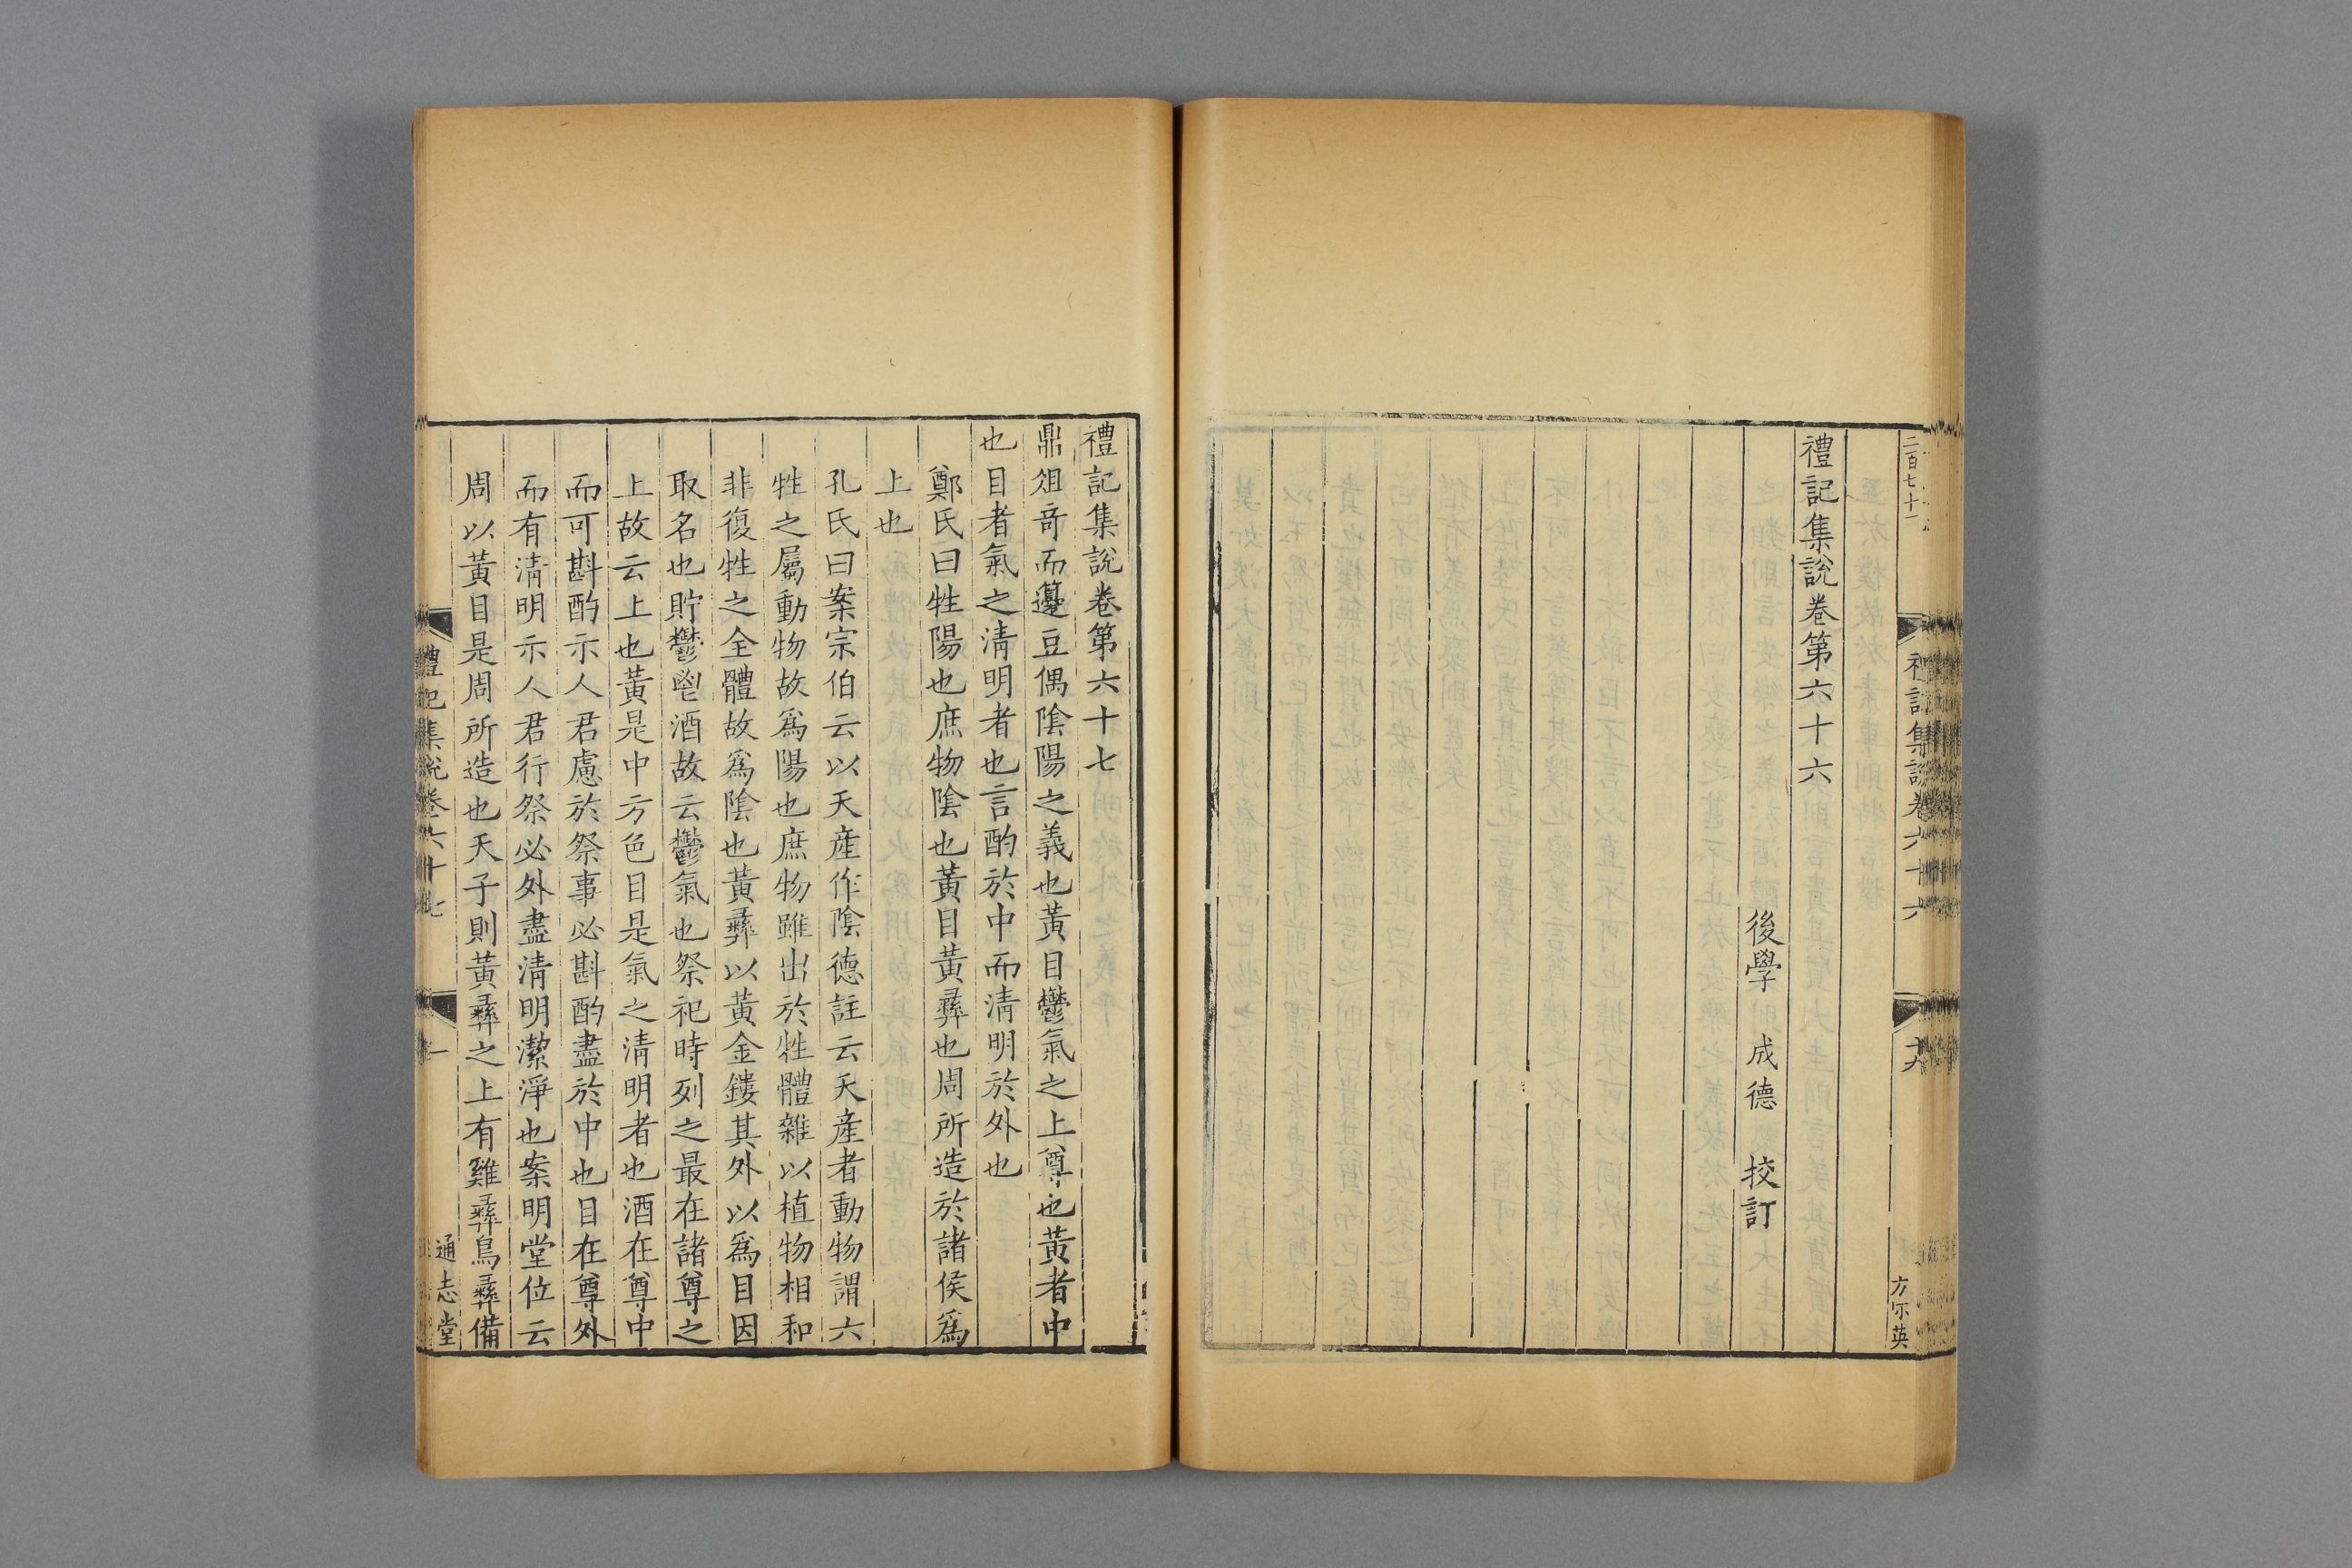 二百七十一
禮記集說卷六十六
十九
方尔英
禮記集說卷第六十六
後學 成德 校訂
禮記集說卷第六十七
鼎俎竒而籩豆偶隂陽之義也黃目鬱氣之上尊也黃者中
也目者氣之淸明者也言酌於中而淸明於外也
鄭氏曰牲陽也庶物隂也黃目黃彞也周所造於諸侯爲
上也
孔氏曰案宗伯云以天産作隂德註云天産者動物謂六
牲之屬動物故爲陽也庶物雖出於牲體雜以植物相和
非復牲之全體故爲隂也黃彞以黃金鏤其外以爲目因
取名也貯鬱鬯酒故云鬱氣也祭祀時列之最在諸尊之
上故云上也黃是中方色目是氣之淸明者也酒在尊中
而可斟酌示人君慮於祭事必斟酌盡於中也目在尊外
而有淸明示人君行祭必外盡淸明潔淨也案明堂位云
周以黃目是周所造也天子則黃彞之上有雞彞鳥彞備
禮記集說卷六十七
一
通志堂